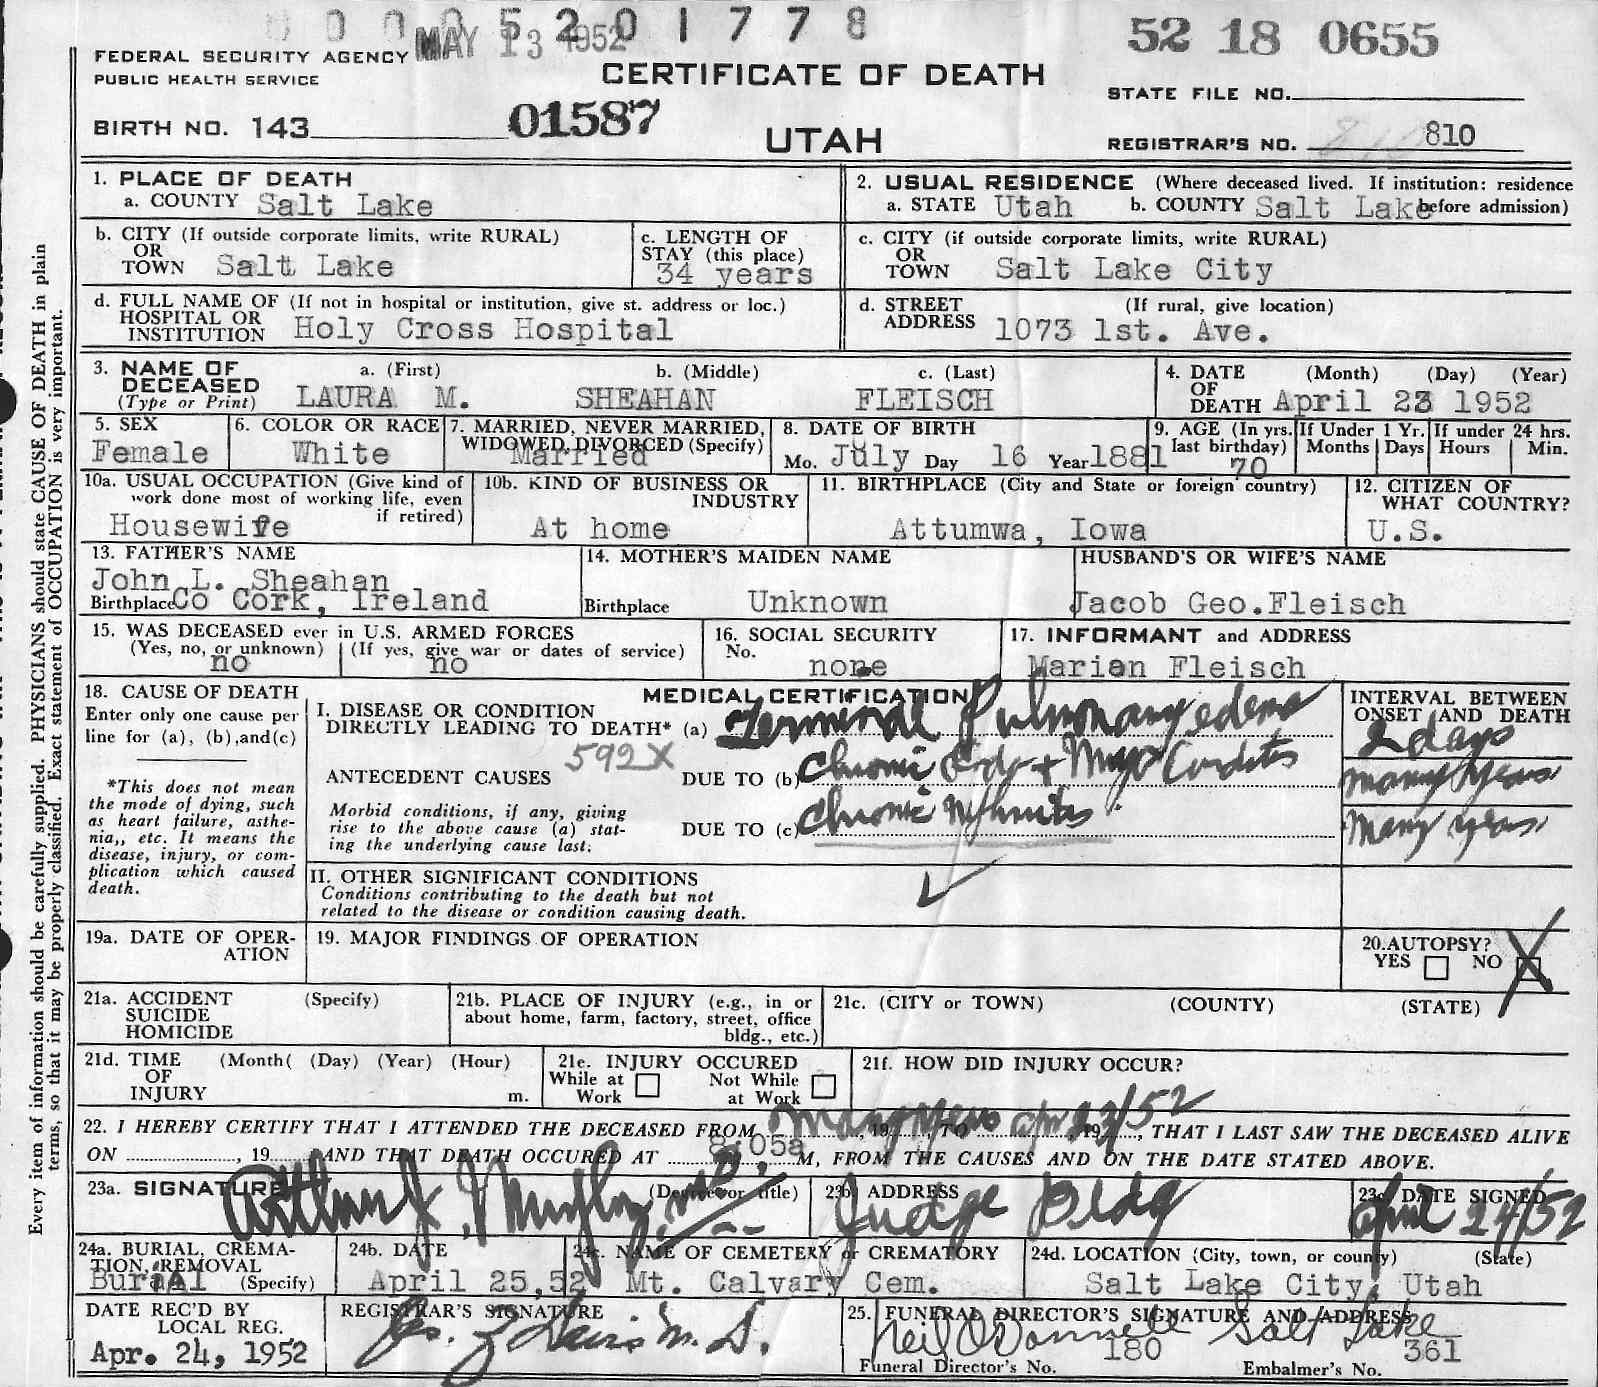 0 0 0 5 2 0 1 7 7 8
MAY 13 1952
52 18 0655
FEDERAL SECURITY AGENCY
PUBLIC HEALTH SERVICE
CERTIFICATE OF DEATH
STATE FILE NO.
BIRTH NO. 143 01587
UTAH
REGISTRAR'S NO. 810
1. PLACE OF DEATH
a. COUNTY Salt Lake
2. USUAL RESIDENCE (Where deceased lived. If institution: residence before admission)
a. STATE Utah b. COUNTY Salt Lake
b. CITY (If outside corporate limits, write RURAL)
OR
TOWN Salt Lake
c. LENGTH OF
STAY (this place)
34 years
c. CITY (if outside corporate limits, write RURAL)
OR
TOWN Salt Lake City
d. FULL NAME OF (If not in hospital or institution, give st. address or loc.)
HOSPITAL OR
INSTITUTION Holy Cross Hospital
d. STREET (If rural, give location)
ADDRESS 1073 1st. Ave.
3. NAME OF
DECEASED
(Type or Print)
a. (First) b. (Middle) c. (Last)
LAURA M. SHEAHAN FLEISCH
4. DATE (Month) (Day) (Year)
OF
DEATH April 23 1952
5. SEX
Female
6. COLOR OR RACE
White
7. MARRIED, NEVER MARRIED,
WIDOWED, DIVORCED (Specify)
Married
8. DATE OF BIRTH
Mo. July Day 16 Year 1881
9. AGE (In yrs.
last birthday)
70
If Under 1 Yr.
Months Days
If under 24 hrs.
Hours Min.
10a. USUAL OCCUPATION (Give kind of
work done most of working life, even
if retired)
Housewife
10b. KIND OF BUSINESS OR
INDUSTRY
At home
11. BIRTHPLACE (City and State or foreign country)
Attumwa, Iowa
12. CITIZEN OF
WHAT COUNTRY?
U.S.
13. FATHER'S NAME
John L. Sheahan
Birthplace Co Cork, Ireland
14. MOTHER'S MAIDEN NAME
Birthplace Unknown
HUSBAND'S OR WIFE'S NAME
Jacob Geo.Fleisch
15. WAS DECEASED ever in U.S. ARMED FORCES
(Yes, no, or unknown) (If yes, give war or dates of service)
no no
16. SOCIAL SECURITY
No.
none
17. INFORMANT and ADDRESS
Marian Fleisch
18. CAUSE OF DEATH
Enter only one cause per
line for (a), (b),and(c)
*This does not mean
the mode of dying, such
as heart failure, asthe-
nia,, etc. It means the
disease, injury, or com-
plication which caused
death.
MEDICAL CERTIFICATION
I. DISEASE OR CONDITION
DIRECTLY LEADING TO DEATH* (a) Terminal Pulmonary edema
592X
ANTECEDENT CAUSES DUE TO (b) Chronic Endo + Myo Carditis
Morbid conditions, if any, giving
rise to the above cause (a) stat-
ing the underlying cause last:
DUE TO (c) Chronic Nephritis
INTERVAL BETWEEN
ONSET AND DEATH
2 days
many years
many years
II. OTHER SIGNIFICANT CONDITIONS
Conditions contributing to the death but not
related to the disease or condition causing death.
19a. DATE OF OPER-
ATION
19. MAJOR FINDINGS OF OPERATION
20. AUTOPSY?
YES NO X
21a. ACCIDENT (Specify)
SUICIDE
HOMICIDE
21b. PLACE OF INJURY (e.g., in or
about home, farm, factory, street, office
bldg., etc.)
21c. (CITY or TOWN) (COUNTY) (STATE)
21d. TIME (Month( (Day) (Year) (Hour)
OF
INJURY m.
21e. INJURY OCCURED
While at Work Not While at Work
21f. HOW DID INJURY OCCUR?
22. I HEREBY CERTIFY THAT I ATTENDED THE DECEASED FROM many years, 19 TO apr 23/52, 19, THAT I LAST SAW THE DECEASED ALIVE
ON , 19 AND THAT DEATH OCCURED AT 8:05a M, FROM THE CAUSES AND ON THE DATE STATED ABOVE.
23a. SIGNATURE (Degree or title)
Arthur J. Murphy M.D.
23b. ADDRESS
Judge Bldg
23c. DATE SIGNED
April 24/52
24a. BURIAL, CREMA-
TION, REMOVAL
Burial (Specify)
24b. DATE
April 25,52
24c. NAME OF CEMETERY or CREMATORY
Mt. Calvary Cem.
24d. LOCATION (City, town, or county) (State)
Salt Lake City, Utah
DATE REC'D BY
LOCAL REG.
Apr. 24, 1952
REGISTRAR'S SIGNATURE
Davis M.D.
25. FUNERAL DIRECTOR'S SIGNATURE AND ADDRESS
Neil O'Donnell Salt Lake
Funeral Director's No. 180 Embalmer's No. 361
Every item of information should be carefully supplied. PHYSICIANS should state CAUSE OF DEATH in plain
terms, so that it may be properly classified. Exact statement of OCCUPATION is very important.